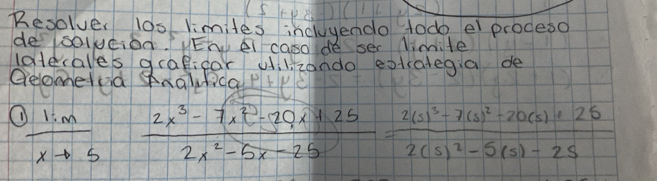 Resolver los limites incluyendo todo el proceso
de solución. En el caso de ser limite
laterales graficar utilizando estrategia de
Geometría Analitica
① lim 2x³ - 7x² - 20x + 25 2(5)³ - 7(5)² - 20(5) + 25
x → 5 2x² - 5x - 25 2(5)² - 5(5) - 25